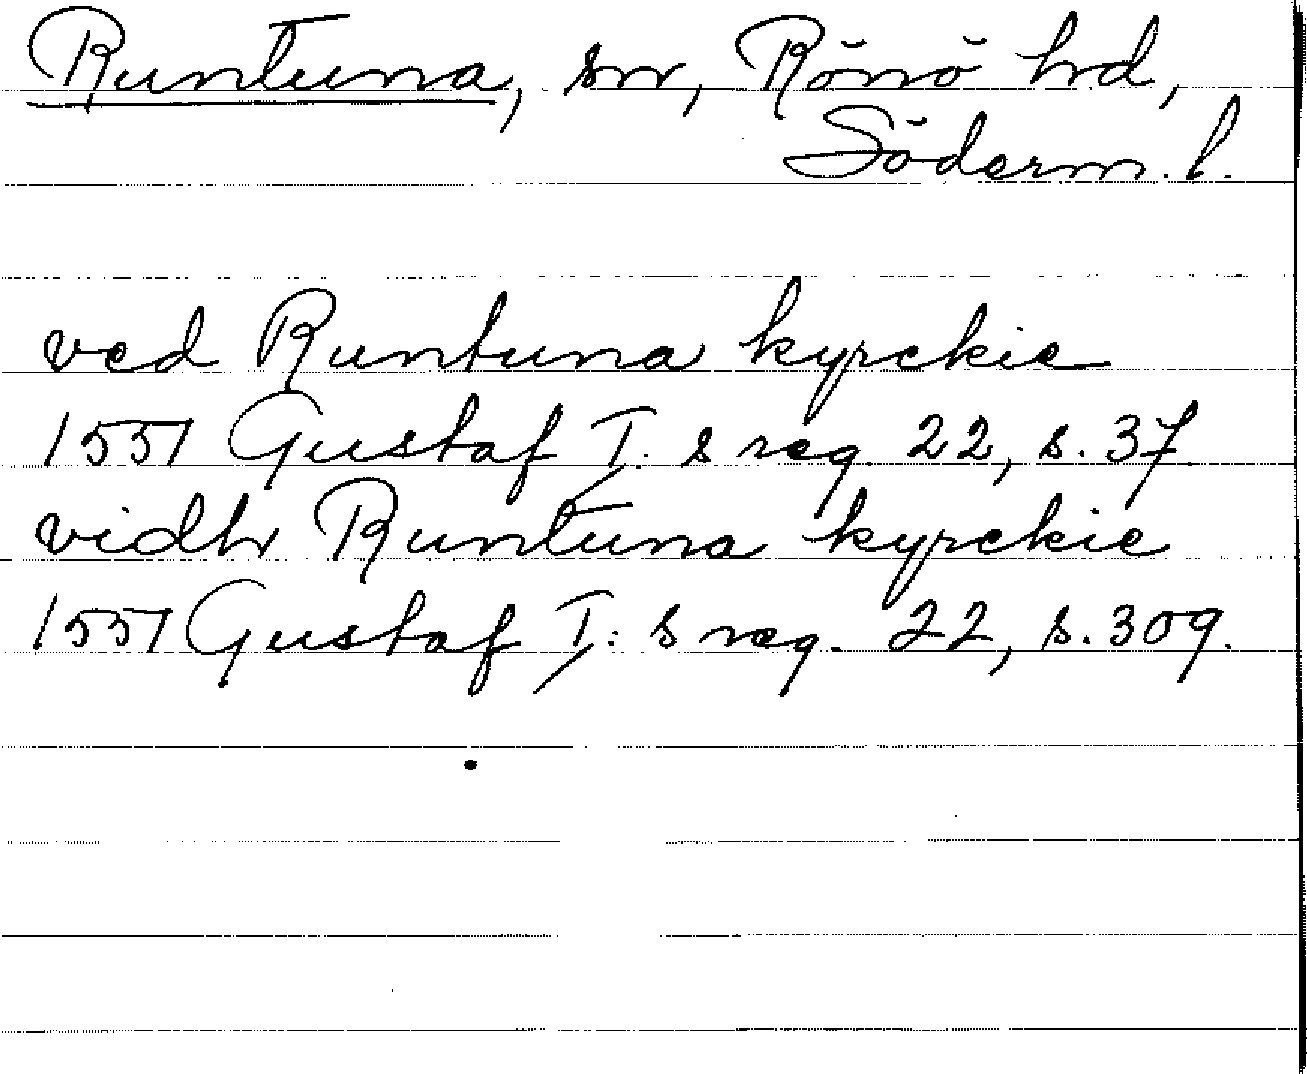 Runtuna, sn, Rönö hd,
Söderm. l.
ved Runtuna kyrckie
1551 Gustaf I. s reg. 22, s. 37.
vidh Runtuna kyrckie
1551 Gustaf I: s reg. 22, s. 309.